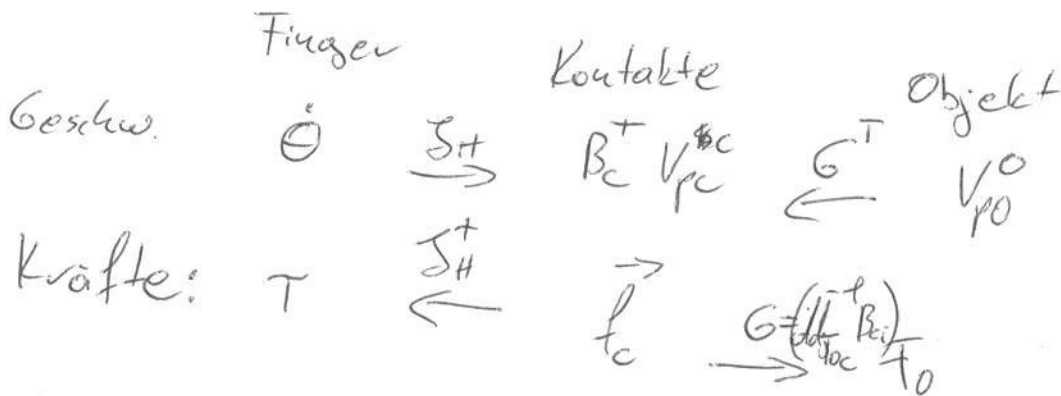 Finger Kontakte Objekt
Geschw. θ̇ J_H → B_c^T V_pc^c G^T ← V_po^o
Kräfte: τ J_H^T ← f_c → G= F_o